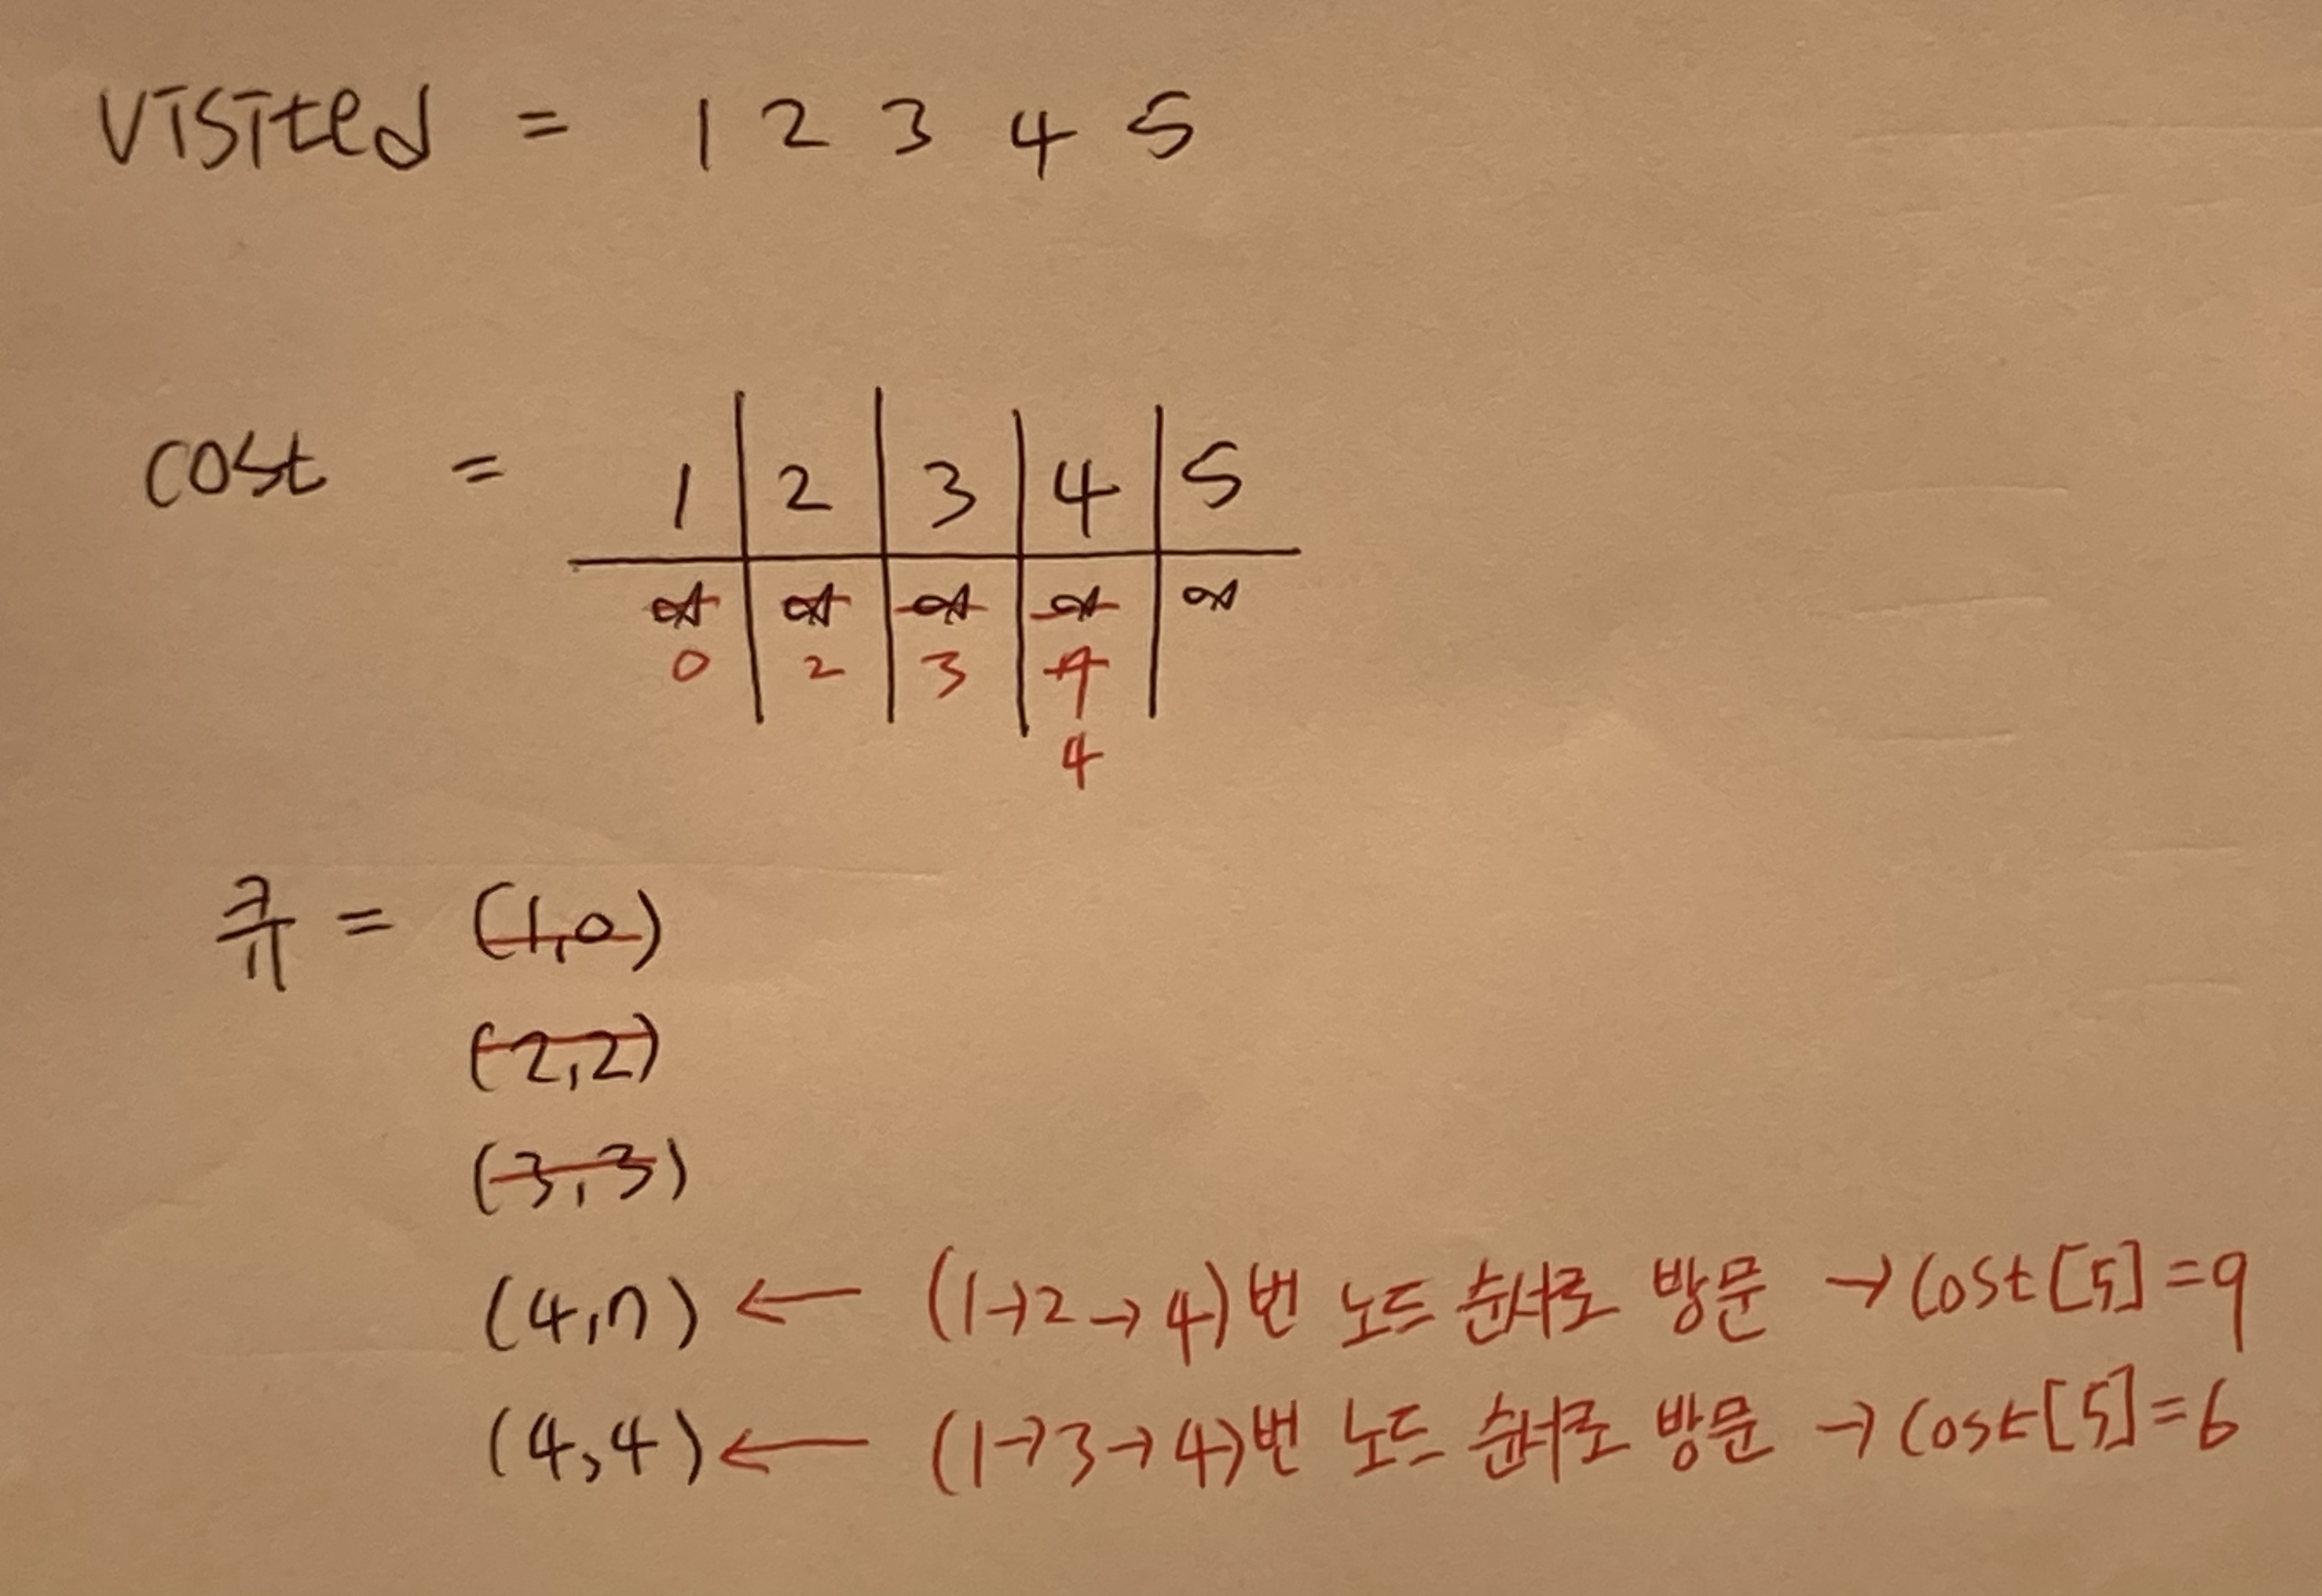 visited = 1 2 3 4 5
cost = 1 2 3 4 5
∞ ∞ ∞ ∞ ∞
0 2 3 7
4
큐 = (1,0)
(2,2)
(3,3)
(4,7) ← (1→2→4)번 노드 순서로 방문 → cost[5]=9
(4,4) ← (1→3→4)번 노드 순서로 방문 → cost[5]=6